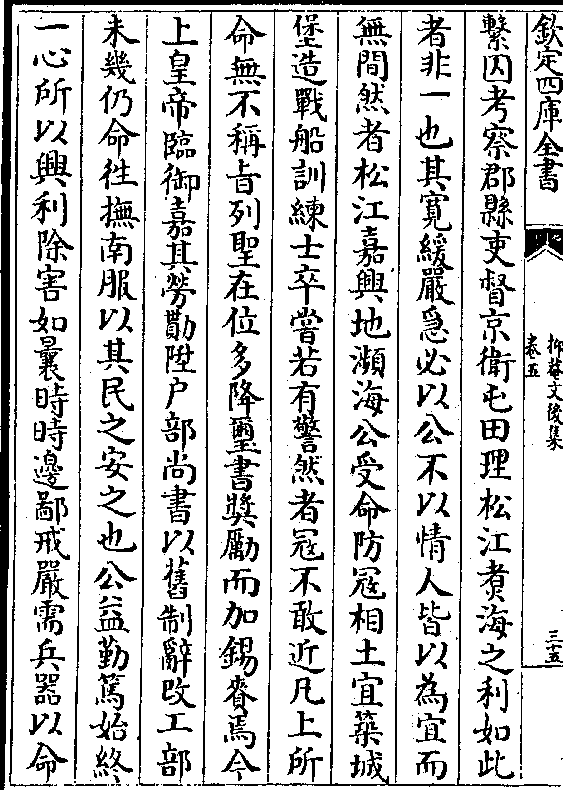 欽定四庫全書
抑菴文後集
卷五
三十五
繫囚考察郡縣吏督京衛屯田理松江煮海之利如此
者非一也其寛緩嚴急必以公不以情人皆以為宜而
無間然者松江嘉興地瀕海公受命防冦相土宜築城
堡造戰船訓練士卒嘗若有警然者冦不敢近凡上所
命無不稱旨列聖在位多降璽書奬勵而加錫賚焉今
上皇帝臨御嘉其勞勩陞户部尚書以舊制辭改工部
未幾仍命往撫南服以其民之安之也公益勤篤始終
一心所以興利除害如曩時時邊鄙戒嚴需兵器以命